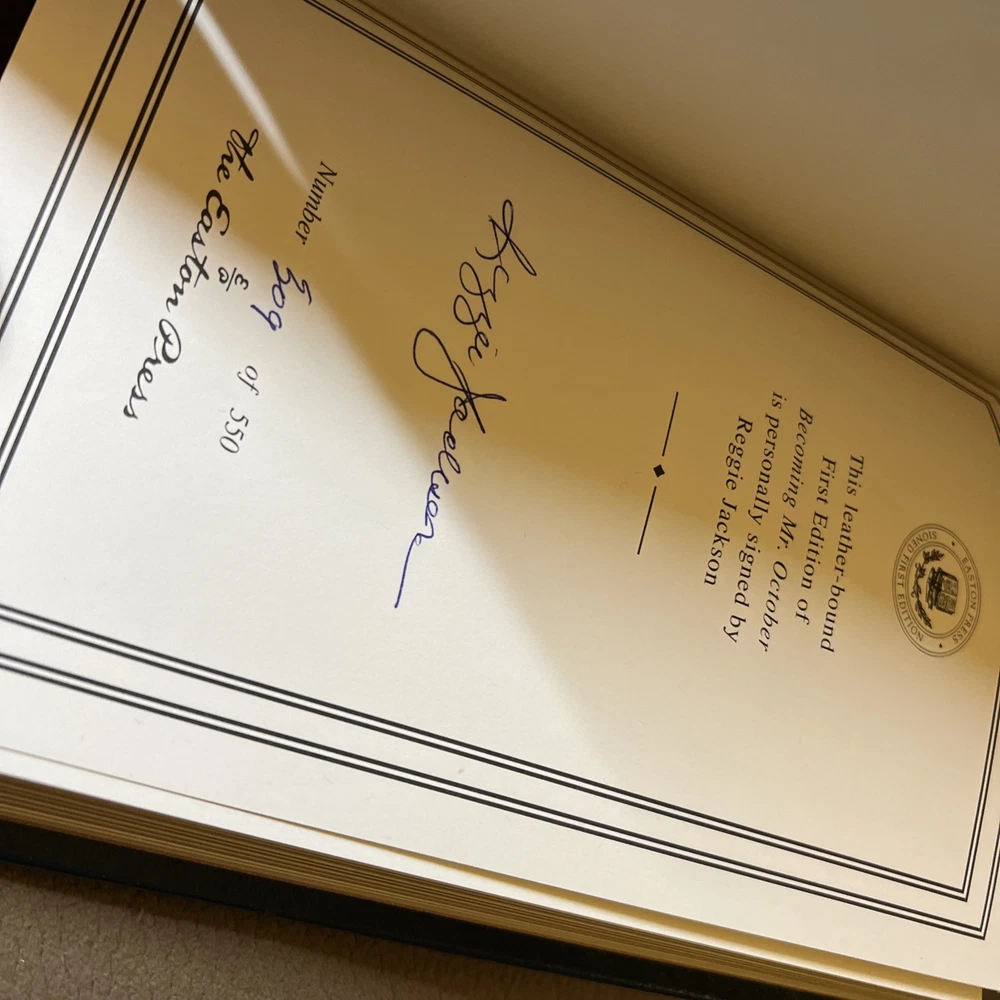 EASTON PRESS
SIGNED FIRST EDITION
This leather-bound
First Edition of
Becoming Mr. October
is personally signed by
Reggie Jackson
Reggie Jackson
Number 509 of 550
The Easton Press